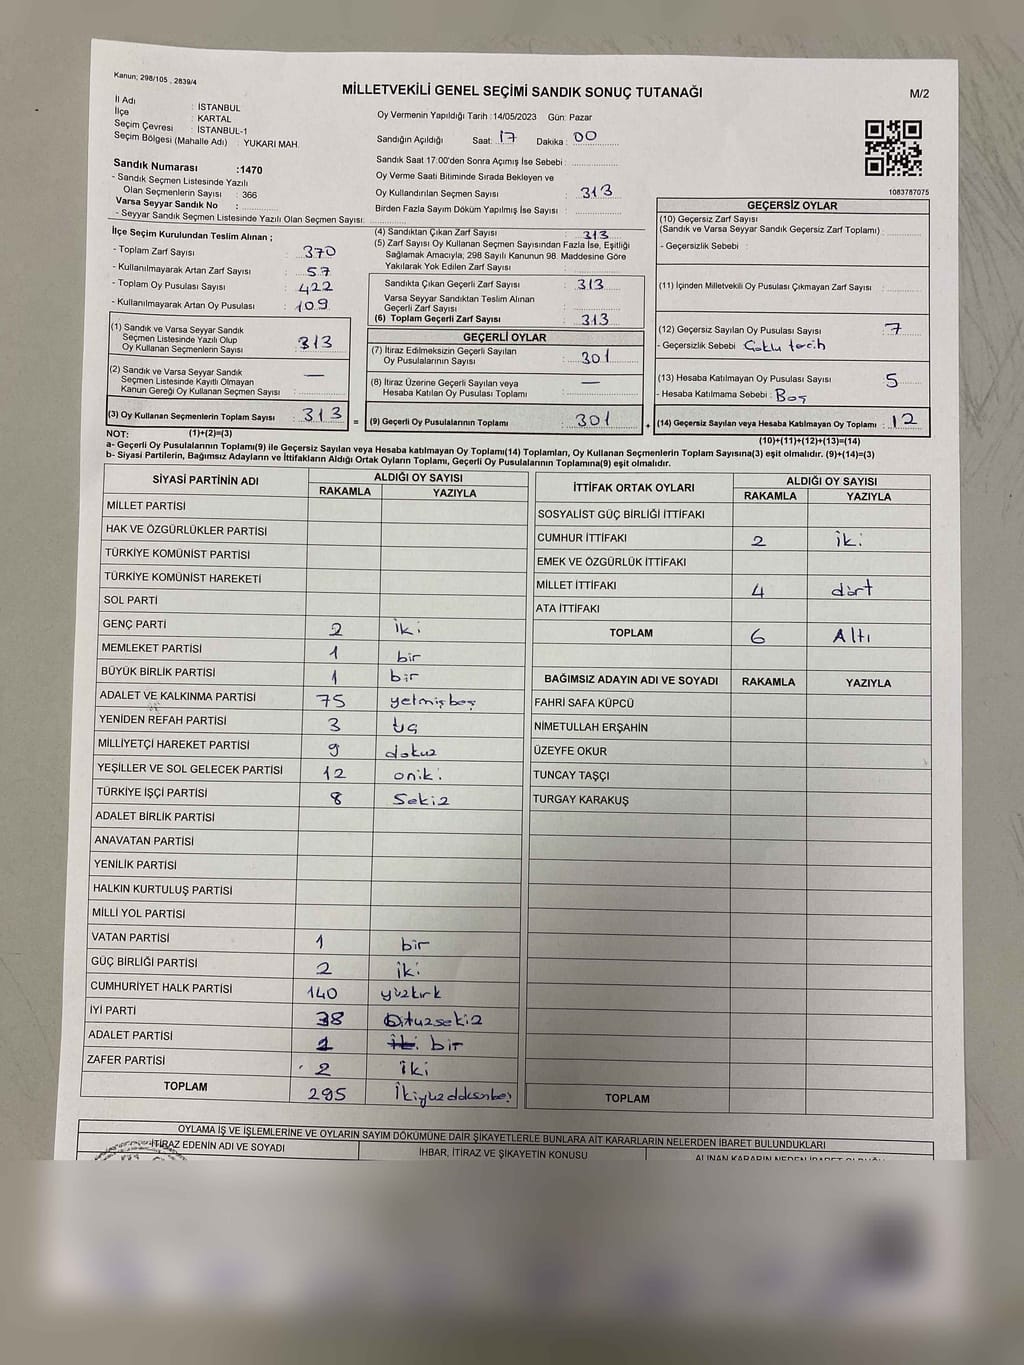 Kanun; 298/105 , 2839/4
MİLLETVEKİLİ GENEL SEÇİMİ SANDIK SONUÇ TUTANAĞI
M/2
İl Adı : İSTANBUL
İlçe : KARTAL
Seçim Çevresi : İSTANBUL-1
Seçim Bölgesi (Mahalle Adı) : YUKARI MAH.
Sandık Numarası :1470
- Sandık Seçmen Listesinde Yazılı
Olan Seçmenlerin Sayısı : 366
Varsa Seyyar Sandık No :
- Seyyar Sandık Seçmen Listesinde Yazılı Olan Seçmen Sayısı:
Oy Vermenin Yapıldığı Tarih :14/05/2023 Gün: Pazar
Sandığın Açıldığı Saat: 17 Dakika : 00
Sandık Saat 17:00'den Sonra Açımış İse Sebebi :
Oy Verme Saati Bitiminde Sırada Bekleyen ve
Oy Kullandırılan Seçmen Sayısı : 313
Birden Fazla Sayım Döküm Yapılmış İse Sayısı :
1083787075
İlçe Seçim Kurulundan Teslim Alınan ;
- Toplam Zarf Sayısı : 370
- Kullanılmayarak Artan Zarf Sayısı : 57
- Toplam Oy Pusulası Sayısı : 422
- Kullanılmayarak Artan Oy Pusulası : 109
(1) Sandık ve Varsa Seyyar Sandık
Seçmen Listesinde Yazılı Olup
Oy Kullanan Seçmenlerin Sayısı : 313
(2) Sandık ve Varsa Seyyar Sandık
Seçmen Listesinde Kayıtlı Olmayan
Kanun Gereği Oy Kullanan Seçmen Sayısı : —
(3) Oy Kullanan Seçmenlerin Toplam Sayısı : 313 =
(1)+(2)=(3)
(4) Sandıktan Çıkan Zarf Sayısı : 313
(5) Zarf Sayısı Oy Kullanan Seçmen Sayısından Fazla İse, Eşitliği
Sağlamak Amacıyla, 298 Sayılı Kanunun 98. Maddesine Göre
Yakılarak Yok Edilen Zarf Sayısı :
Sandıkta Çıkan Geçerli Zarf Sayısı : 313
Varsa Seyyar Sandıktan Teslim Alınan
Geçerli Zarf Sayısı :
(6) Toplam Geçerli Zarf Sayısı : 313
GEÇERLİ OYLAR
(7) İtiraz Edilmeksizin Geçerli Sayılan
Oy Pusulalarının Sayısı : 301
(8) İtiraz Üzerine Geçerli Sayılan veya
Hesaba Katılan Oy Pusulası Toplamı : —
(9) Geçerli Oy Pusulalarının Toplamı : 301 +
GEÇERSİZ OYLAR
(10) Geçersiz Zarf Sayısı
(Sandık ve Varsa Seyyar Sandık Geçersiz Zarf Toplamı) :
- Geçersizlik Sebebi :
(11) İçinden Milletvekili Oy Pusulası Çıkmayan Zarf Sayısı :
(12) Geçersiz Sayılan Oy Pusulası Sayısı : 7
- Geçersizlik Sebebi : Çoklu tercih
(13) Hesaba Katılmayan Oy Pusulası Sayısı : 5
- Hesaba Katılmama Sebebi : Boş
(14) Geçersiz Sayılan veya Hesaba Katılmayan Oy Toplamı : 12
(10)+(11)+(12)+(13)=(14)
NOT:
a- Geçerli Oy Pusulalarının Toplamı(9) ile Geçersiz Sayılan veya Hesaba katılmayan Oy Toplamı(14) Toplamları, Oy Kullanan Seçmenlerin Toplam Sayısına(3) eşit olmalıdır. (9)+(14)=(3)
b- Siyasi Partilerin, Bağımsız Adayların ve İttifakların Aldığı Ortak Oyların Toplamı, Geçerli Oy Pusulalarının Toplamına(9) eşit olmalıdır.
SİYASİ PARTİNİN ADI ALDIĞI OY SAYISI
RAKAMLA YAZIYLA
MİLLET PARTİSİ
HAK VE ÖZGÜRLÜKLER PARTİSİ
TÜRKİYE KOMÜNİST PARTİSİ
TÜRKİYE KOMÜNİST HAREKETİ
SOL PARTİ
GENÇ PARTİ 2 iki
MEMLEKET PARTİSİ 1 bir
BÜYÜK BİRLİK PARTİSİ 1 bir
ADALET VE KALKINMA PARTİSİ 75 yetmişbeş
YENİDEN REFAH PARTİSİ 3 üç
MİLLİYETÇİ HAREKET PARTİSİ 9 dokuz
YEŞİLLER VE SOL GELECEK PARTİSİ 12 oniki
TÜRKİYE İŞÇİ PARTİSİ 8 Sekiz
ADALET BİRLİK PARTİSİ
ANAVATAN PARTİSİ
YENİLİK PARTİSİ
HALKIN KURTULUŞ PARTİSİ
MİLLİ YOL PARTİSİ
VATAN PARTİSİ 1 bir
GÜÇ BİRLİĞİ PARTİSİ 2 iki
CUMHURİYET HALK PARTİSİ 140 yüzkırk
İYİ PARTİ 38 Otuzsekiz
ADALET PARTİSİ 1 bir
ZAFER PARTİSİ 2 İki
TOPLAM 295 İkiyüzdoksanbeş
İTTİFAK ORTAK OYLARI ALDIĞI OY SAYISI
RAKAMLA YAZIYLA
SOSYALİST GÜÇ BİRLİĞİ İTTİFAKI
CUMHUR İTTİFAKI 2 iki
EMEK VE ÖZGÜRLÜK İTTİFAKI
MİLLET İTTİFAKI 4 dört
ATA İTTİFAKI
TOPLAM 6 Altı
BAĞIMSIZ ADAYIN ADI VE SOYADI RAKAMLA YAZIYLA
FAHRİ SAFA KÜPCÜ
NİMETULLAH ERŞAHİN
ÜZEYFE OKUR
TUNCAY TAŞÇI
TURGAY KARAKUŞ
TOPLAM
OYLAMA İŞ VE İŞLEMLERİNE VE OYLARIN SAYIM DÖKÜMÜNE DAİR ŞİKAYETLERLE BUNLARA AİT KARARLARIN NELERDEN İBARET BULUNDUKLARI
İTİRAZ EDENİN ADI VE SOYADI
İHBAR, İTİRAZ VE ŞİKAYETİN KONUSU
ALINAN KARARIN NEDEN İBARET OLDUĞU